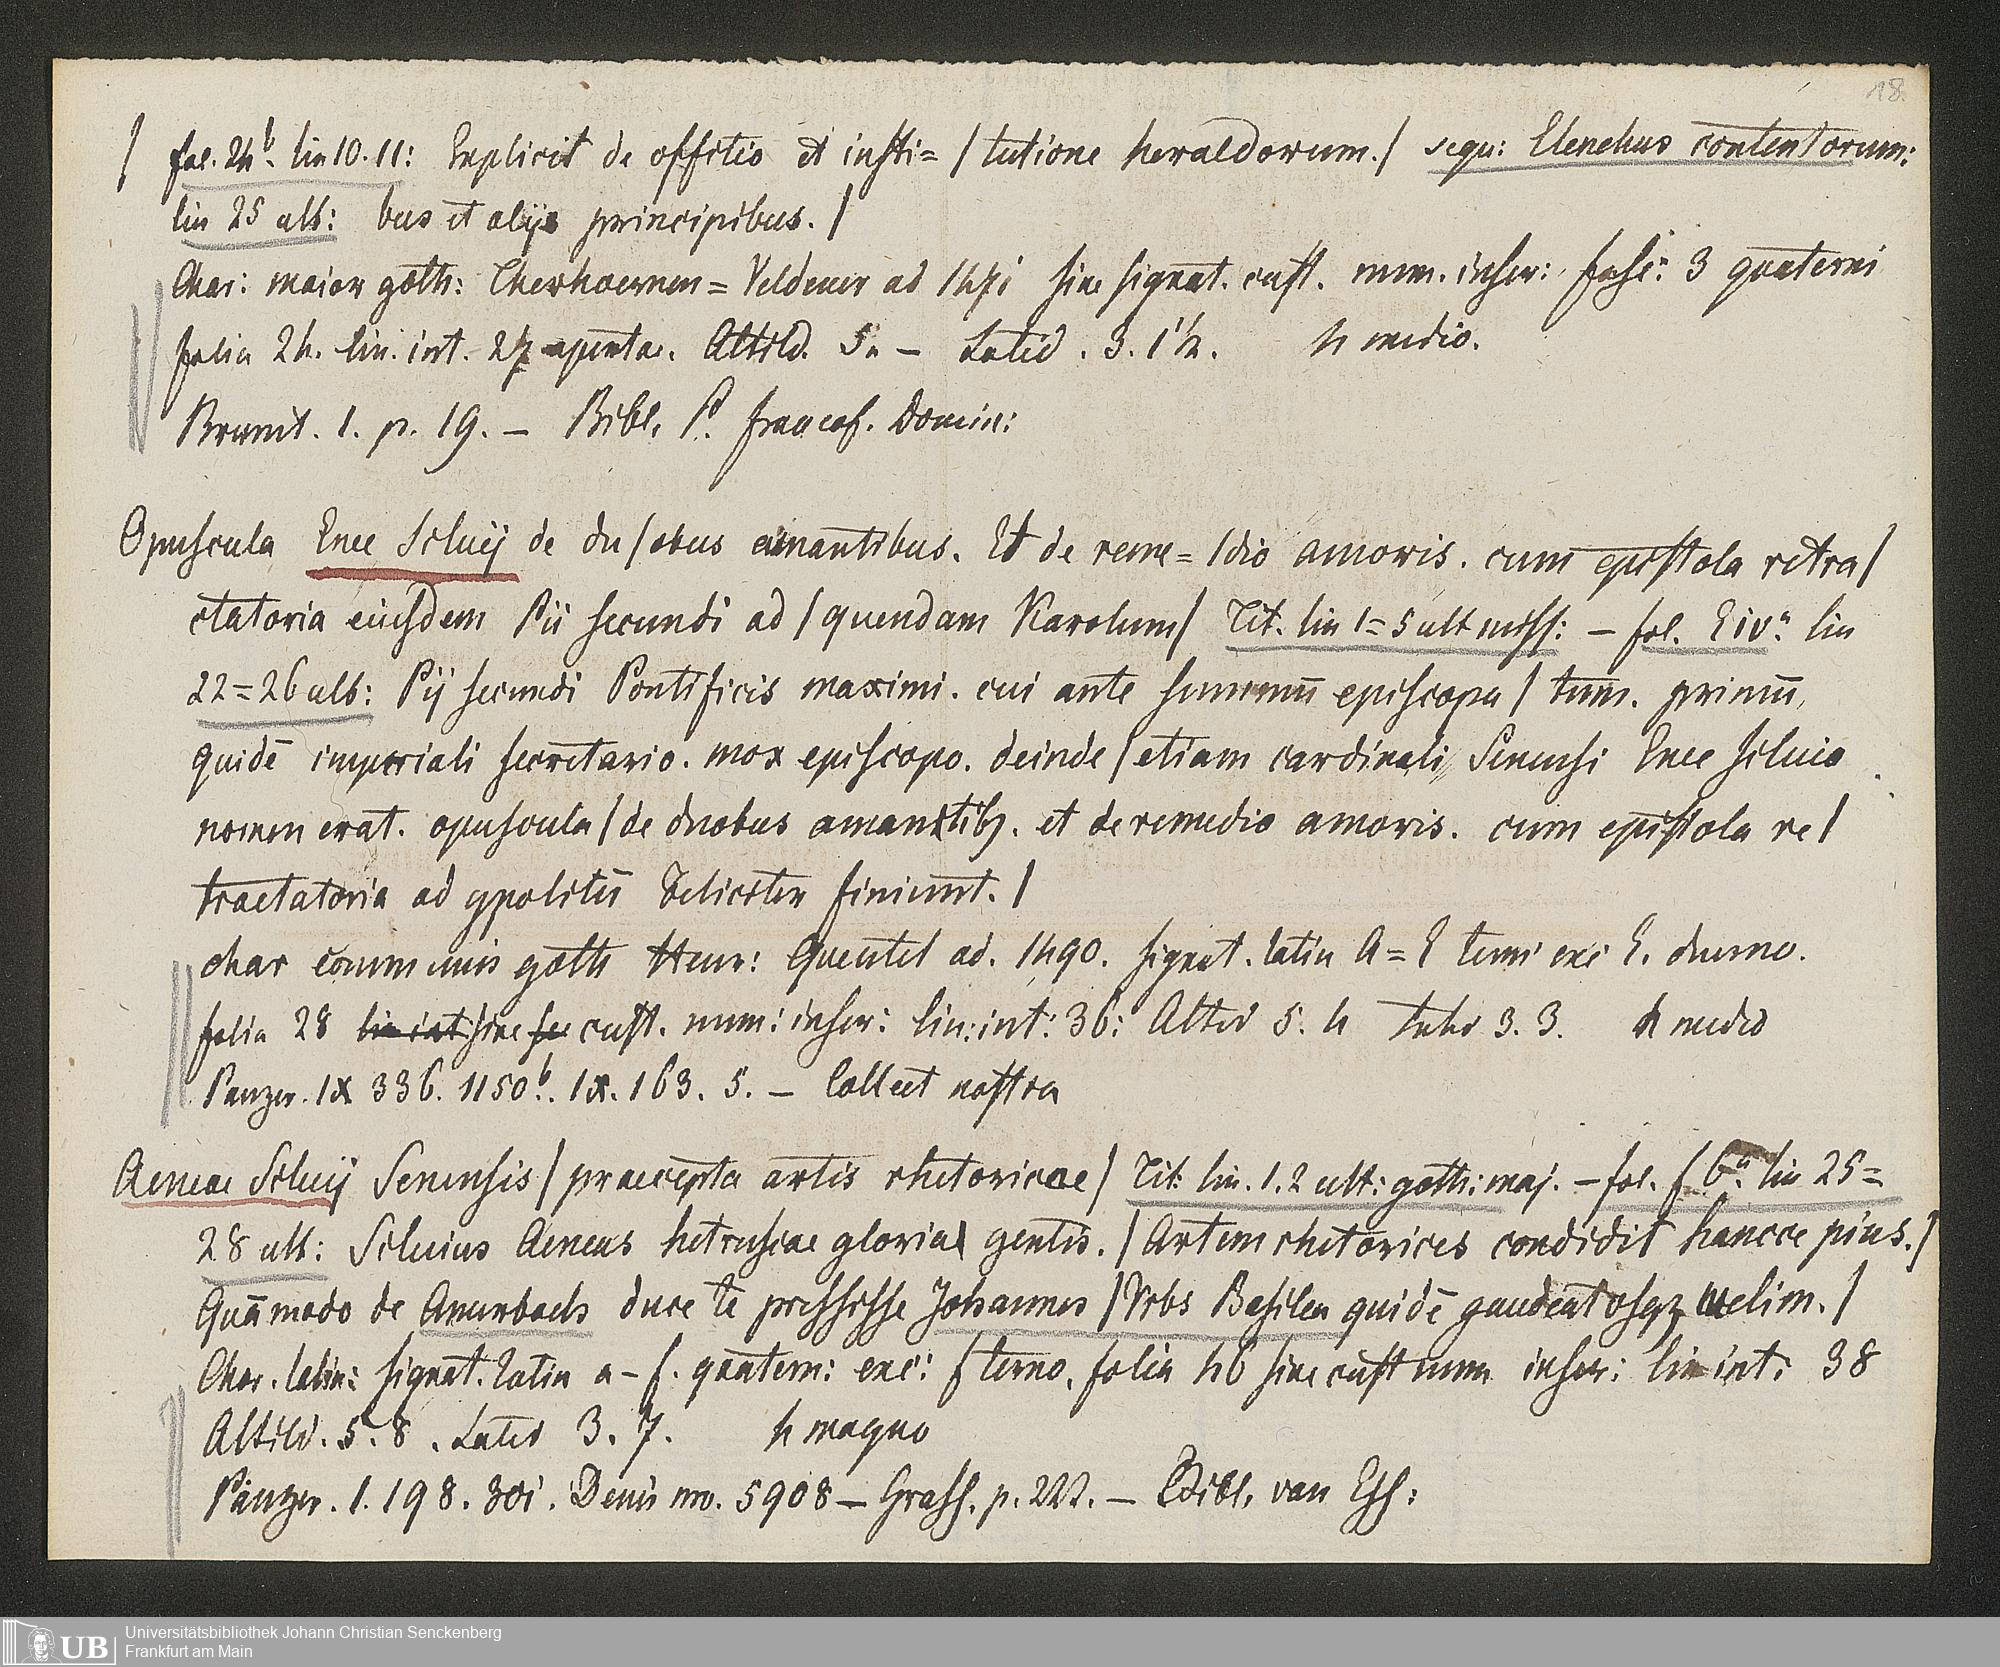 18.
/ fol. 24b. lin 10. 11: Explicit de offitio et insti= / tutione heraldorum. / sequ: Elenchus contentorum:
lin 25 ult: bus et alijs principibus. /
Char: maior goth: Therhoernen = Veldener ad 1471 sine signat. cust. num. inscr: fasc: 3 quaterni
folia 24. lin. int. 27 apertae. Altitd. 5. — Latid. 3. 1 1/2. 4 medio.
Brunet. 1. p. 19. — Bibl. P. francof. Domin:
Opuscula Enee Siluij de du / obus amantibus. Et de reme= / dio amoris. cum epistola retra /
ctatoria eiusdem Pii secundi ad / quendam Karolum / Tit. lin 1=5 ult miss: — fol. Eiva. lin
22=26 ult: Pij secundi Pontificis maximi. cui ante summū episcopa / tum. primū,
quidē imperiali secretario. mox episcopo. deinde / etiam cardinali, Senensi Enee siluio
nomen erat. opuscula / de duobus amantibꝫ. et de remedio amoris. cum epistola re /
tractatoria ad ypolitū feliciter finiunt. /
char communis goth Henr: Quentel ad. 1490. signat. latin A=E terni exc E. duerno.
folia 28 lin int sine cust. num: inscr: lin: int: 36: Altid 5. 4 Latid 3. 3. 4 medio
Panzer. IX 336. 1150b. IX. 163. 5. — Collect nostra
Aeneae Siluij Senensis / praecepta artis rhetoricae / Tit: lin. 1. 2 ult: goth: maj. — fol. f 6a. lin 25=
28 ult: Siluius Aeneas hetrusiae gloria gentis. / Artem rhetorices condidit hancce pius. /
Quā modo de Amerbach duce te pressisse Johannes / Vrbs Basilea quidē gaudeat osqꝫ velim. /
Char. latin: signat. latin a–f. quatern: exc: f terno. folia 46 sine cust num inscr: lin int: 38
Altitd. 5. 8. Latid 3. 7. 4 magno
Panzer. 1. 198. 301. Denis no. 5908 — Grass. p. 222. — Bibl. van Ess:
UB Universitätsbibliothek Johann Christian Senckenberg
Frankfurt am Main